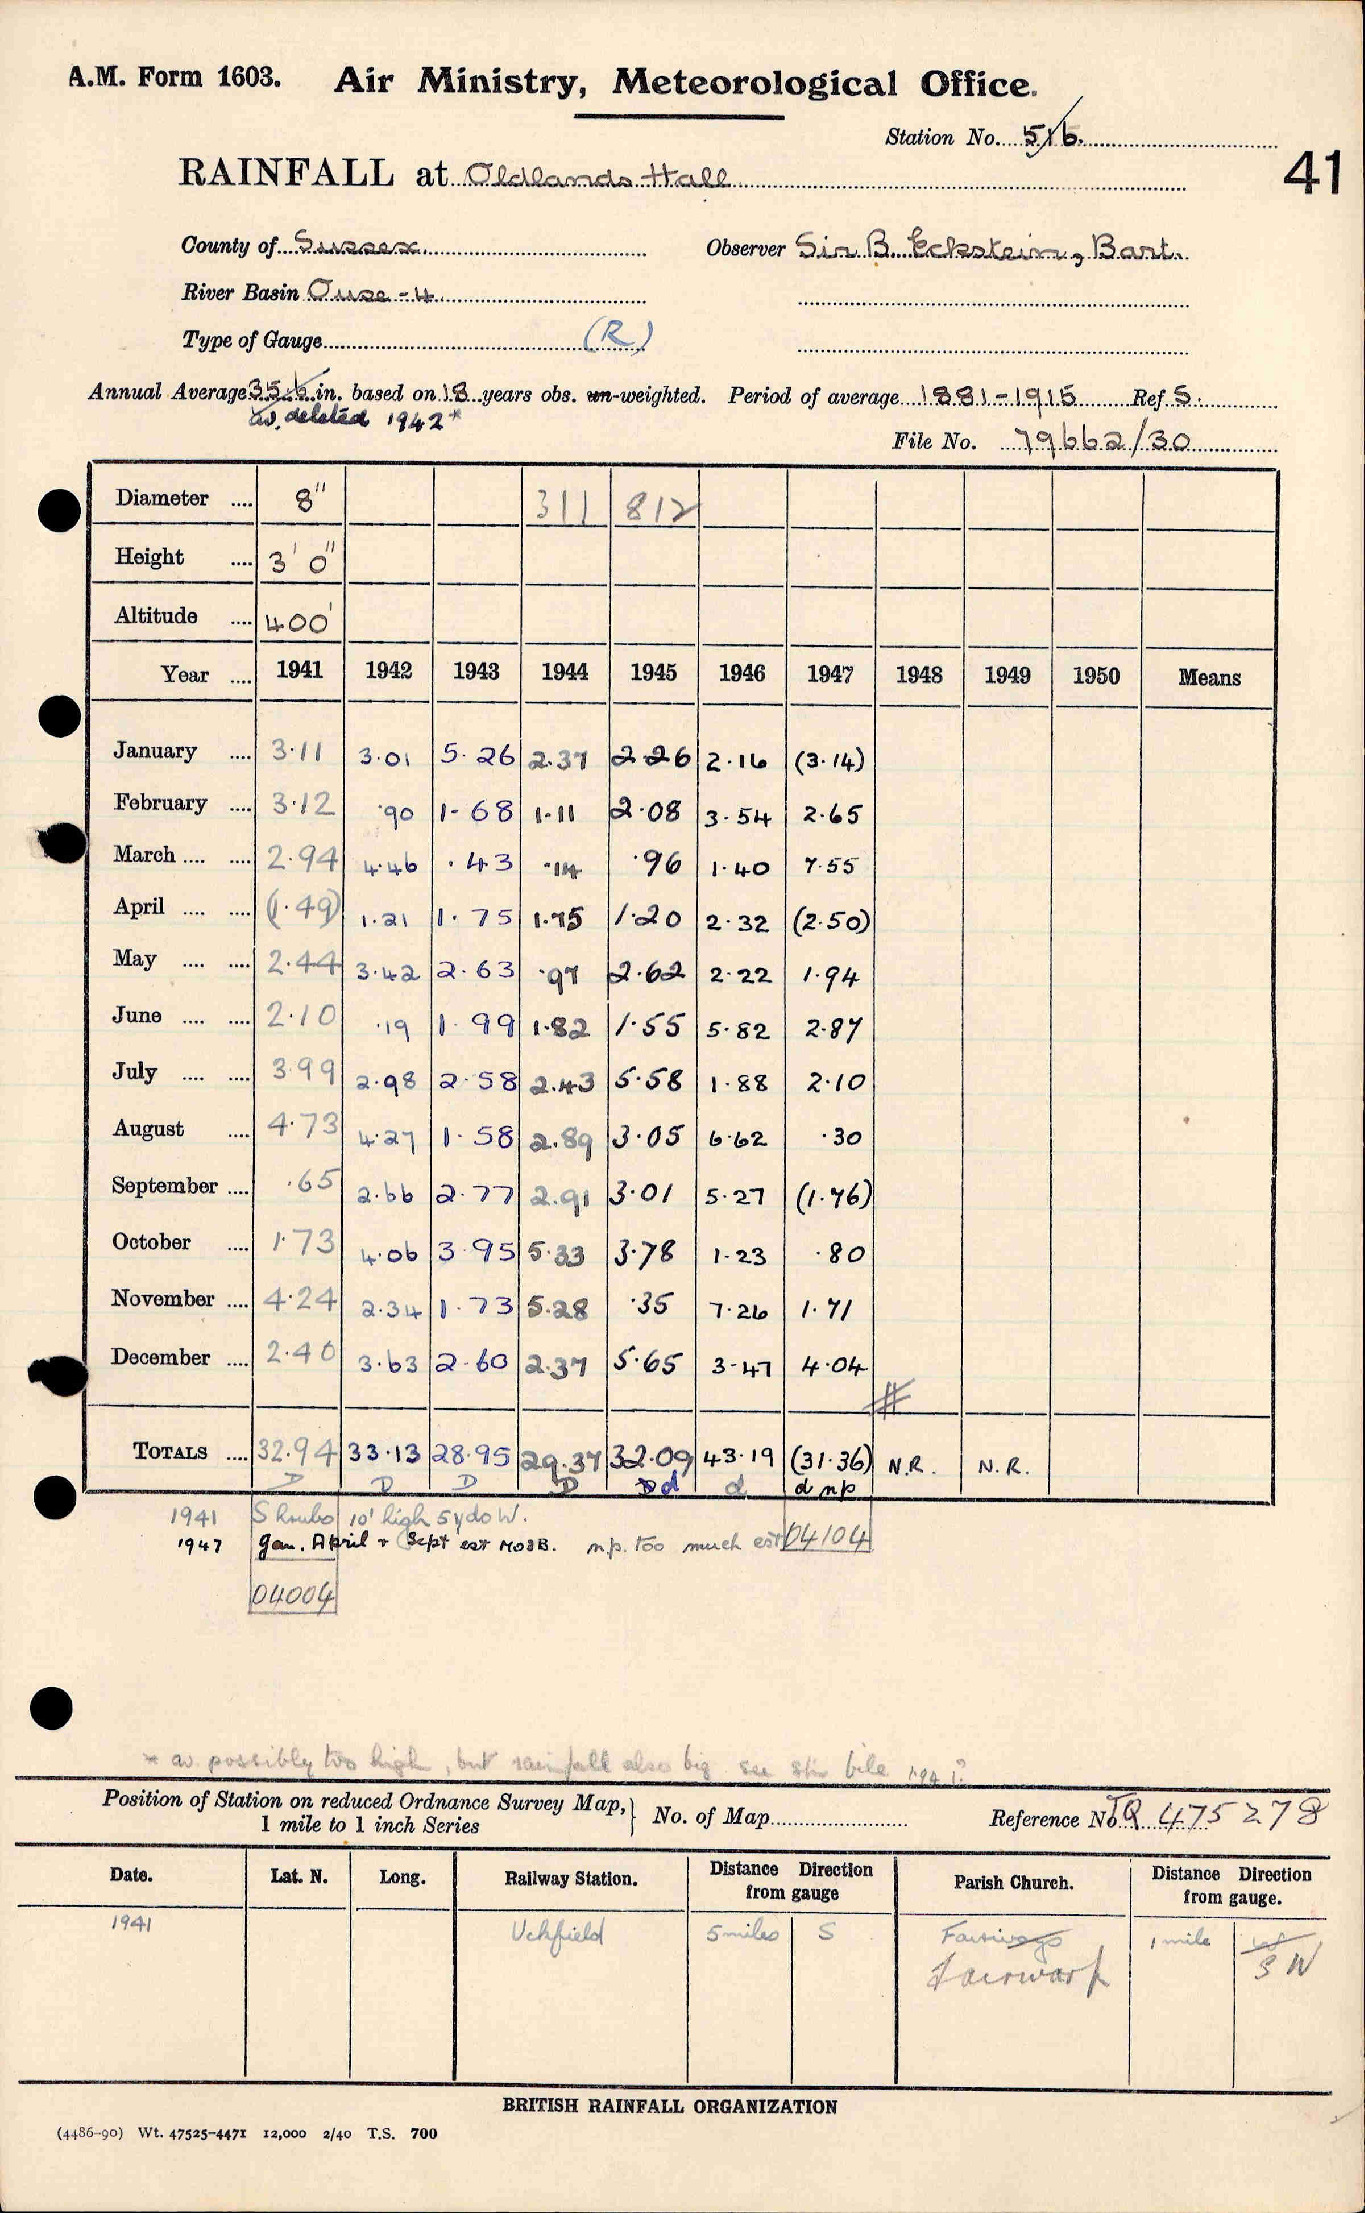 A.M. Form 1603. Air Ministry, Meteorological Office.
Station No. 516.
41
RAINFALL at Oldlands Hall
County of Sussex Observer Sir B. Eckstein, Bart.
River Basin Ouse - 4
Type of Gauge (R)
Annual Average 35.6 in. based on 18 years obs. un-weighted. Period of average 1881-1915 Ref S.
av. deleted 1942*
File No. 79662/30
Diameter .... 8" 311 812
Height .... 3' 0"
Altitude .... 400'
Year .... 1941 1942 1943 1944 1945 1946 1947 1948 1949 1950 Means
January .... 3.11 3.01 5.26 2.37 2.26 2.16 (3.14)
February .... 3.12 .90 1.68 1.11 2.08 3.54 2.65
March .... .... 2.94 4.46 .43 .14 .96 1.40 7.55
April .... .... (1.49) 1.21 1.75 1.75 1.20 2.32 (2.50)
May .... .... 2.44 3.42 2.63 .97 2.62 2.22 1.94
June .... .... 2.10 .19 1.99 1.82 1.55 5.82 2.87
July .... .... 3.99 2.98 2.58 2.43 5.58 1.88 2.10
August .... 4.73 4.27 1.58 2.89 3.05 6.62 .30
September .... .65 2.66 2.77 2.91 3.01 5.27 (1.76)
October .... 1.73 4.06 3.95 5.33 3.78 1.23 .80
November .... 4.24 2.34 1.73 5.28 .35 7.26 1.71
December .... 2.40 3.63 2.60 2.37 5.65 3.47 4.04
TOTALS .... 32.94 33.13 28.95 29.37 32.09 43.19 (31.36) N.R. N.R.
D D D D D d d d np
1941 Shrubs 10' high 5 yds W.
1947 Jan. April + Sept est MO3B. n.p. too much est 04104
04004
* av. possibly too high, but rainfall also big see stn file
Position of Station on reduced Ordnance Survey Map, 1 mile to 1 inch Series } No. of Map Reference No TQ 475278
Date. Lat. N. Long. Railway Station. Distance Direction from gauge Parish Church. Distance Direction from gauge.
1941 Uckfield 5 miles S 1 mile W
Fairwarp SW
BRITISH RAINFALL ORGANIZATION
(4486-90) Wt. 47525-4471 12,000 2/40 T.S. 700